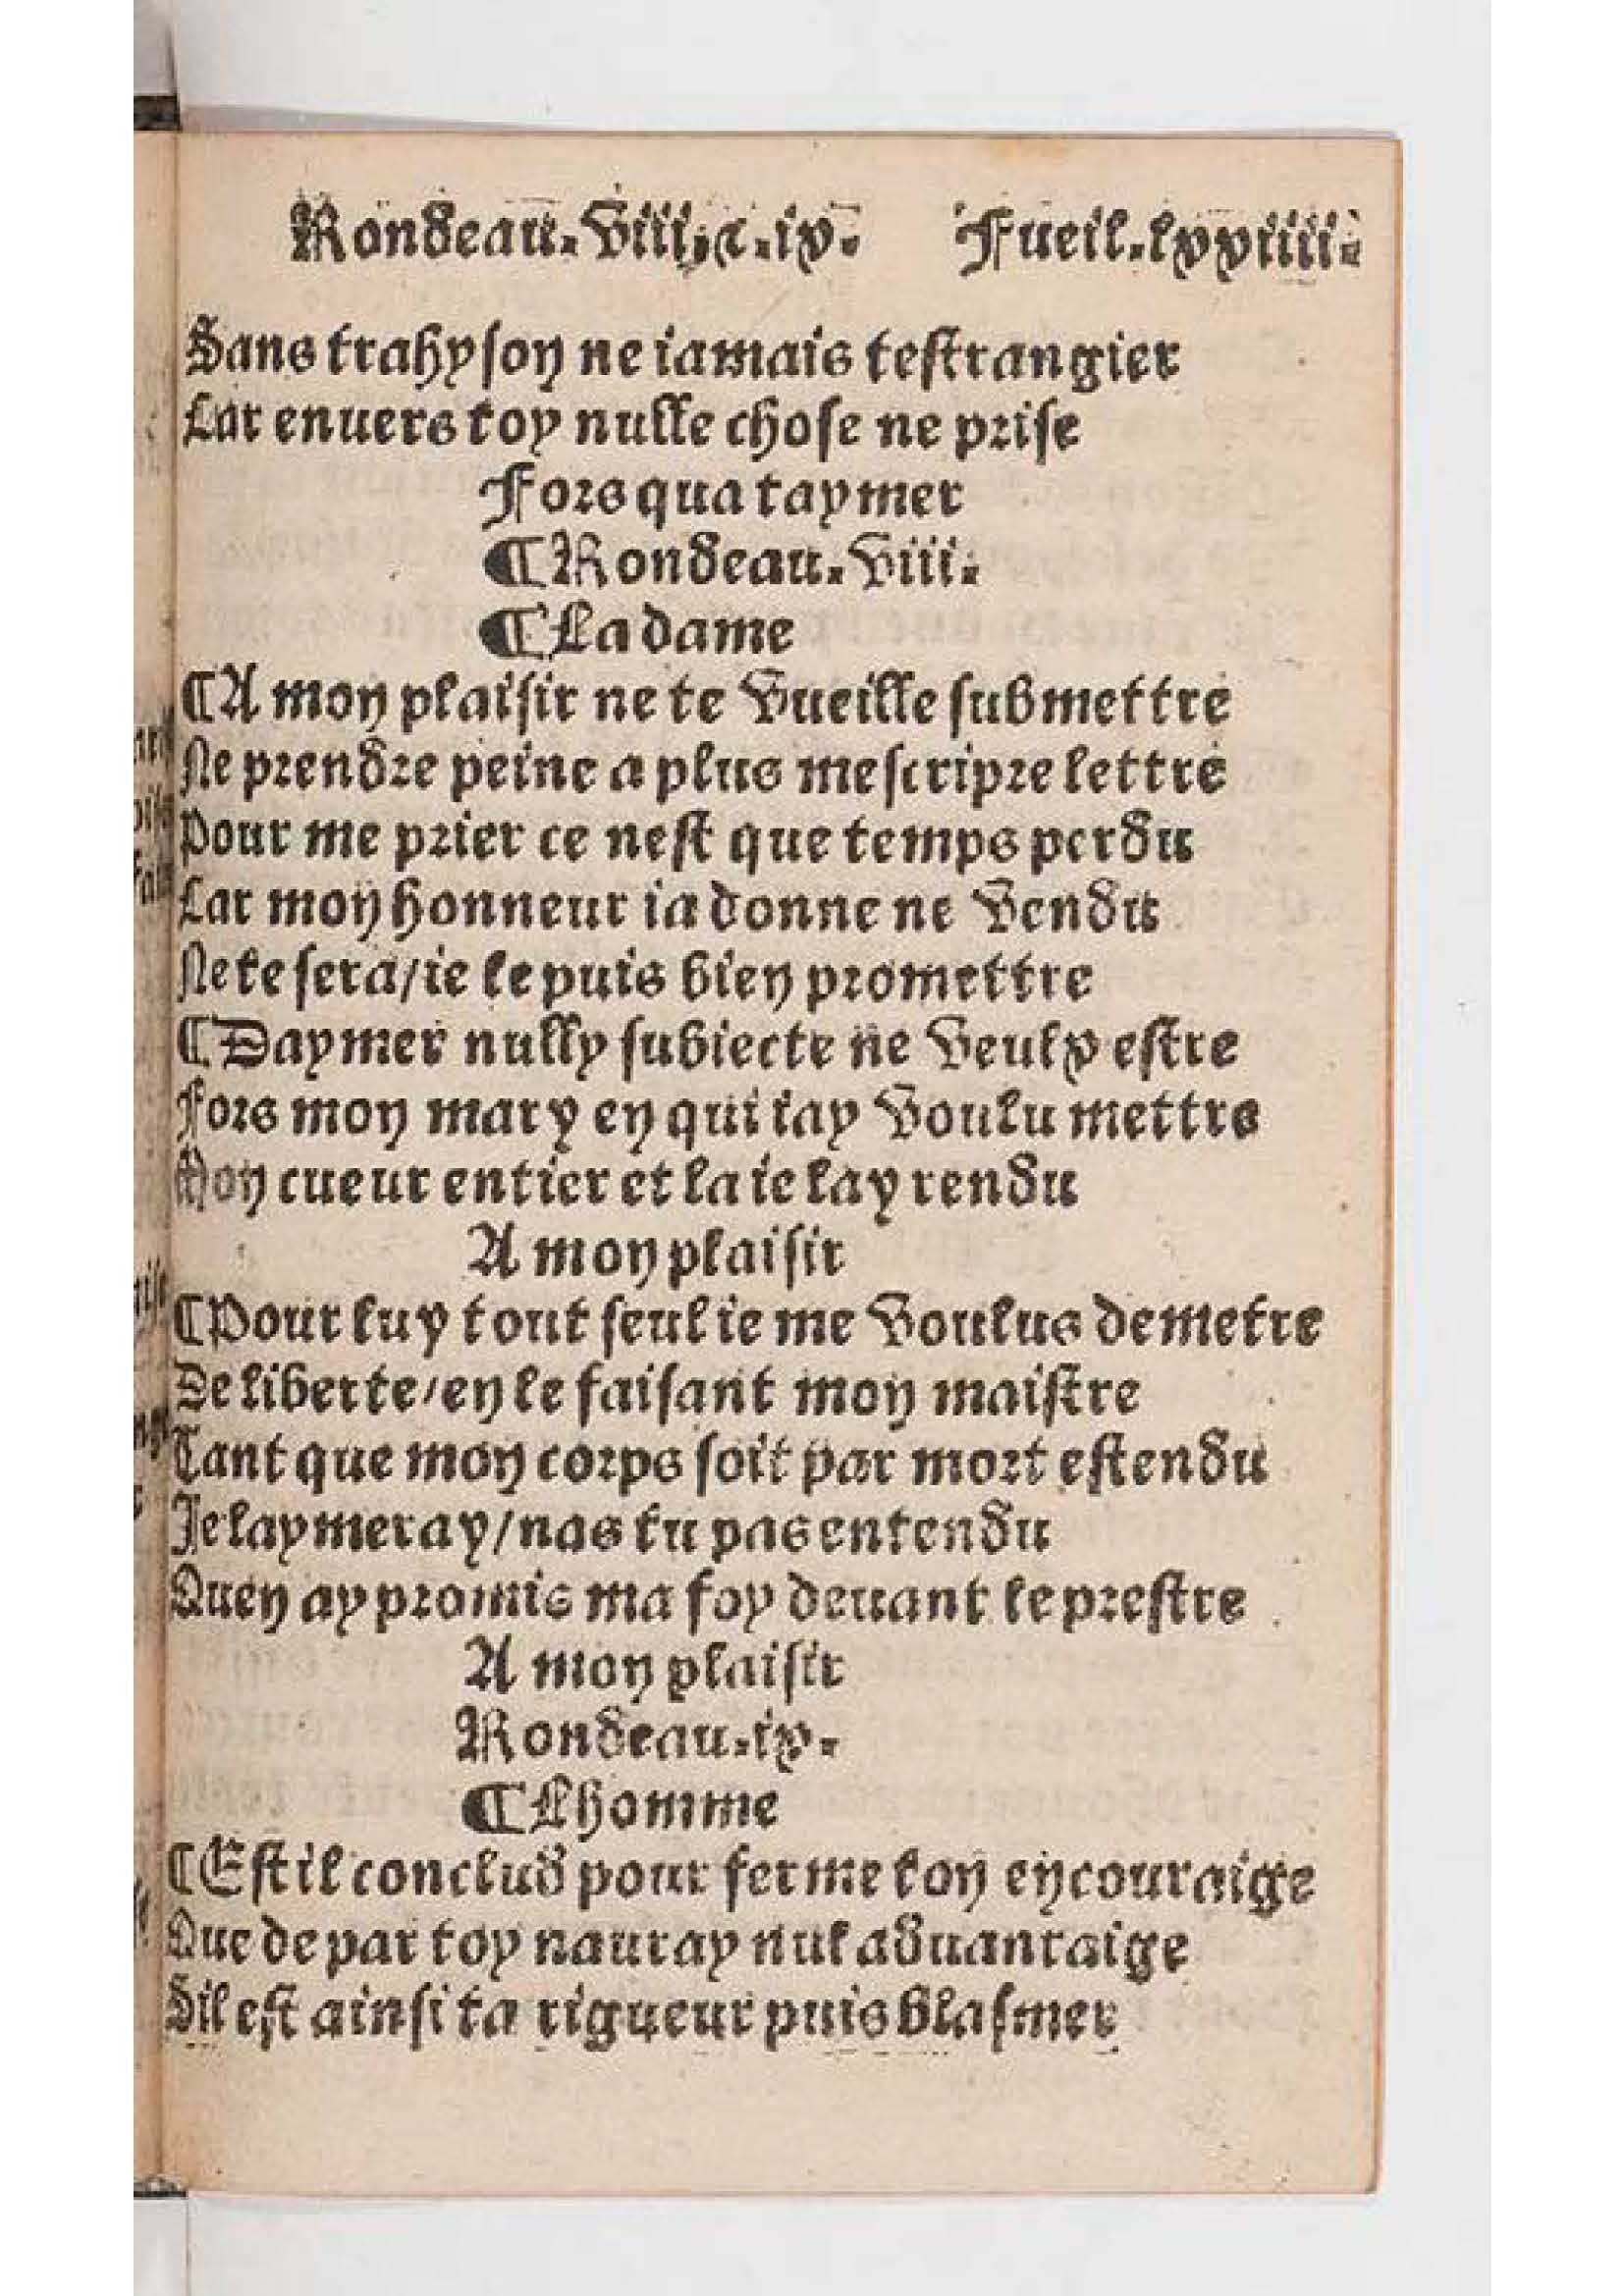 Rondeau.viii.⁊.ix. Fueil.lxxiiii.
Sans trahyson ne iamais testrangier
Car enuers toy nulle chose ne prise
Fors qua taymer
¶Rondeau.viii.
¶La dame
¶A mon plaisir ne te vueille submettre
Ne prendre peine a plus mescripre lettre
Pour me prier ce nest que temps perdu
Car mon honneur ia donne ne vendu
Ne te sera/ie le puis bien promettre
¶Daymer nully subiecte ne veulx estre
Fors mon mary en qui iay voulu mettre
Mon cueur entier et la ie lay rendu
A mon plaisir
¶Pour luy tout seul ie me voulus demetre
De liberte/en le faisant mon maistre
Tant que mon corps soit par mort estendu
Je laymeray/nas tu pas entendu
Quen ay promis ma foy deuant le prestre
A mon plaisir
Rondeau.ix.
¶Lhomme
¶Est il conclud pour ferme ton encouraige
Que de par toy nauray nul aduantaige
Sil est ainsi ta rigueur puis blasmer